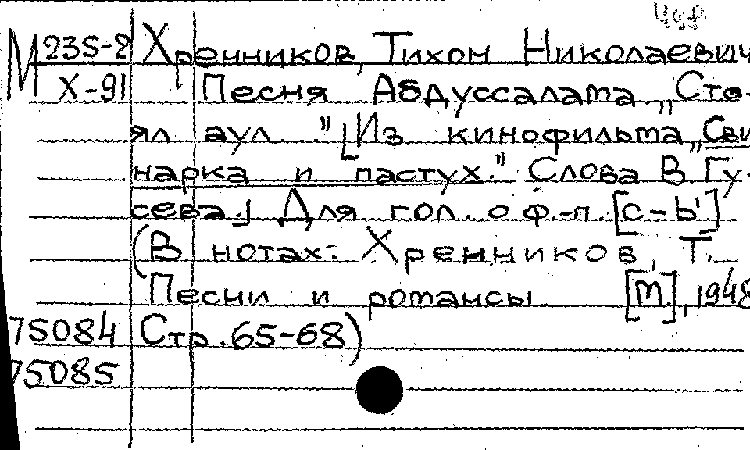 М 235-2 Хренников, Тихон Николаевич
Х-91 Песня Абдуссалата „Сто-
ял аул." [Из кинофильма „Сви
нарка и пастух." Слова В. Гу-
сева.] Для гол. с ф.-п. [c-b']
(В нотах: Хренников, Т.
Песни и романсы [М], 1948
75084 Стр. 65-68)
75085